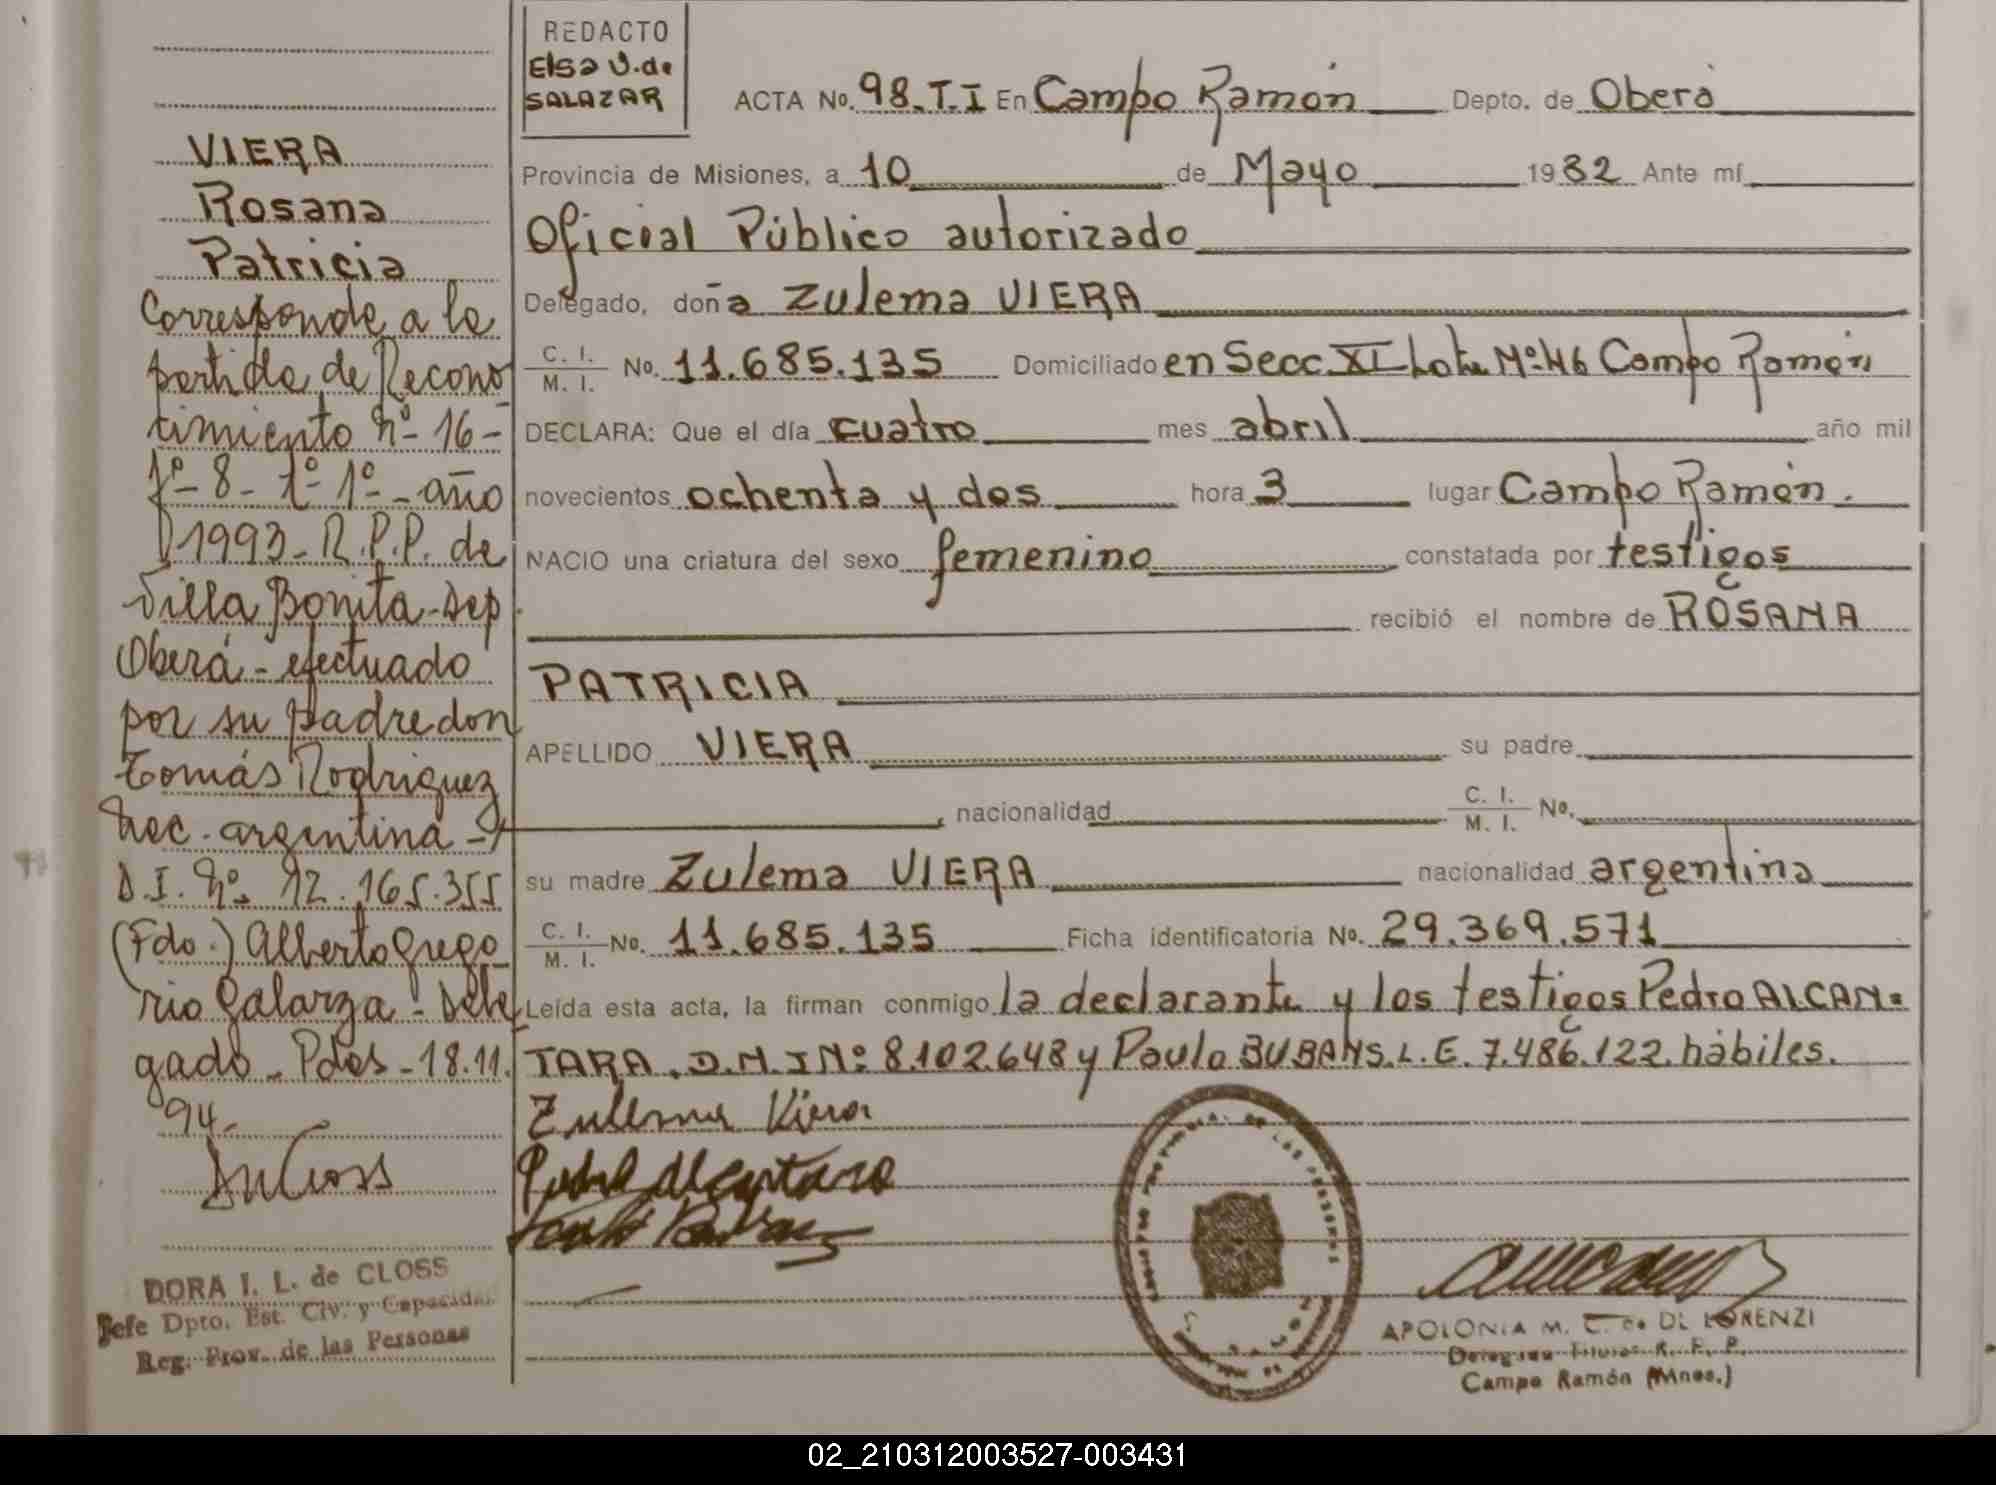 REDACTO
Elsa V. de
SALAZAR
ACTA No. 98. T. I En Campo Ramón Depto. de Oberá
Provincia de Misiones, a 10 de Mayo 1982 Ante mí
Oficial Público autorizado
Delegado, doña Zulema VIERA
C. I.
M. I. No. 11.685.135 Domiciliado en Secc. XI Lote Nº 46 Campo Ramón
DECLARA: Que el día cuatro mes abril año mil
novecientos ochenta y dos hora 3 lugar Campo Ramón.
NACIO una criatura del sexo femenino constatada por testigos
recibió el nombre de ROSANA
PATRICIA
APELLIDO VIERA su padre
nacionalidad C. I.
M. I. No.
su madre Zulema VIERA nacionalidad argentina
C. I.
M. I. No. 11.685.135 Ficha identificatoria No. 29.369.571
Leída esta acta, la firman conmigo la declarante y los testigos Pedro ALCAN-
TARA. D.N.I Nº 8.102.648 y Paulo BUBANS. L.E. 7.486.122. hábiles.
Zulema Viera
Pedro Alcantara
APOLONIA M. C. de DE LORENZI
Delegada Titular R. P. P.
Campo Ramón (Mnes.)
VIERA
Rosana
Patricia
Corresponde a la
partida de Recono
cimiento nº- 16-
fº- 8- tº- 1º- año
1993- R.P.P. de
Villa Bonita- Dep
Oberá- efectuado
por su padre don
Tomás Rodriguez
nac. argentina-
D.I. Nº 12.165.355
(Fdo.) Alberto Grego
rio Galarza- Dele
gado- Pdas- 18.11.
94-
DORA I. L. de CLOSS
Jefe Dpto. Est. Civ. y Capacidad
Reg. Prov. de las Personas
02_210312003527-003431